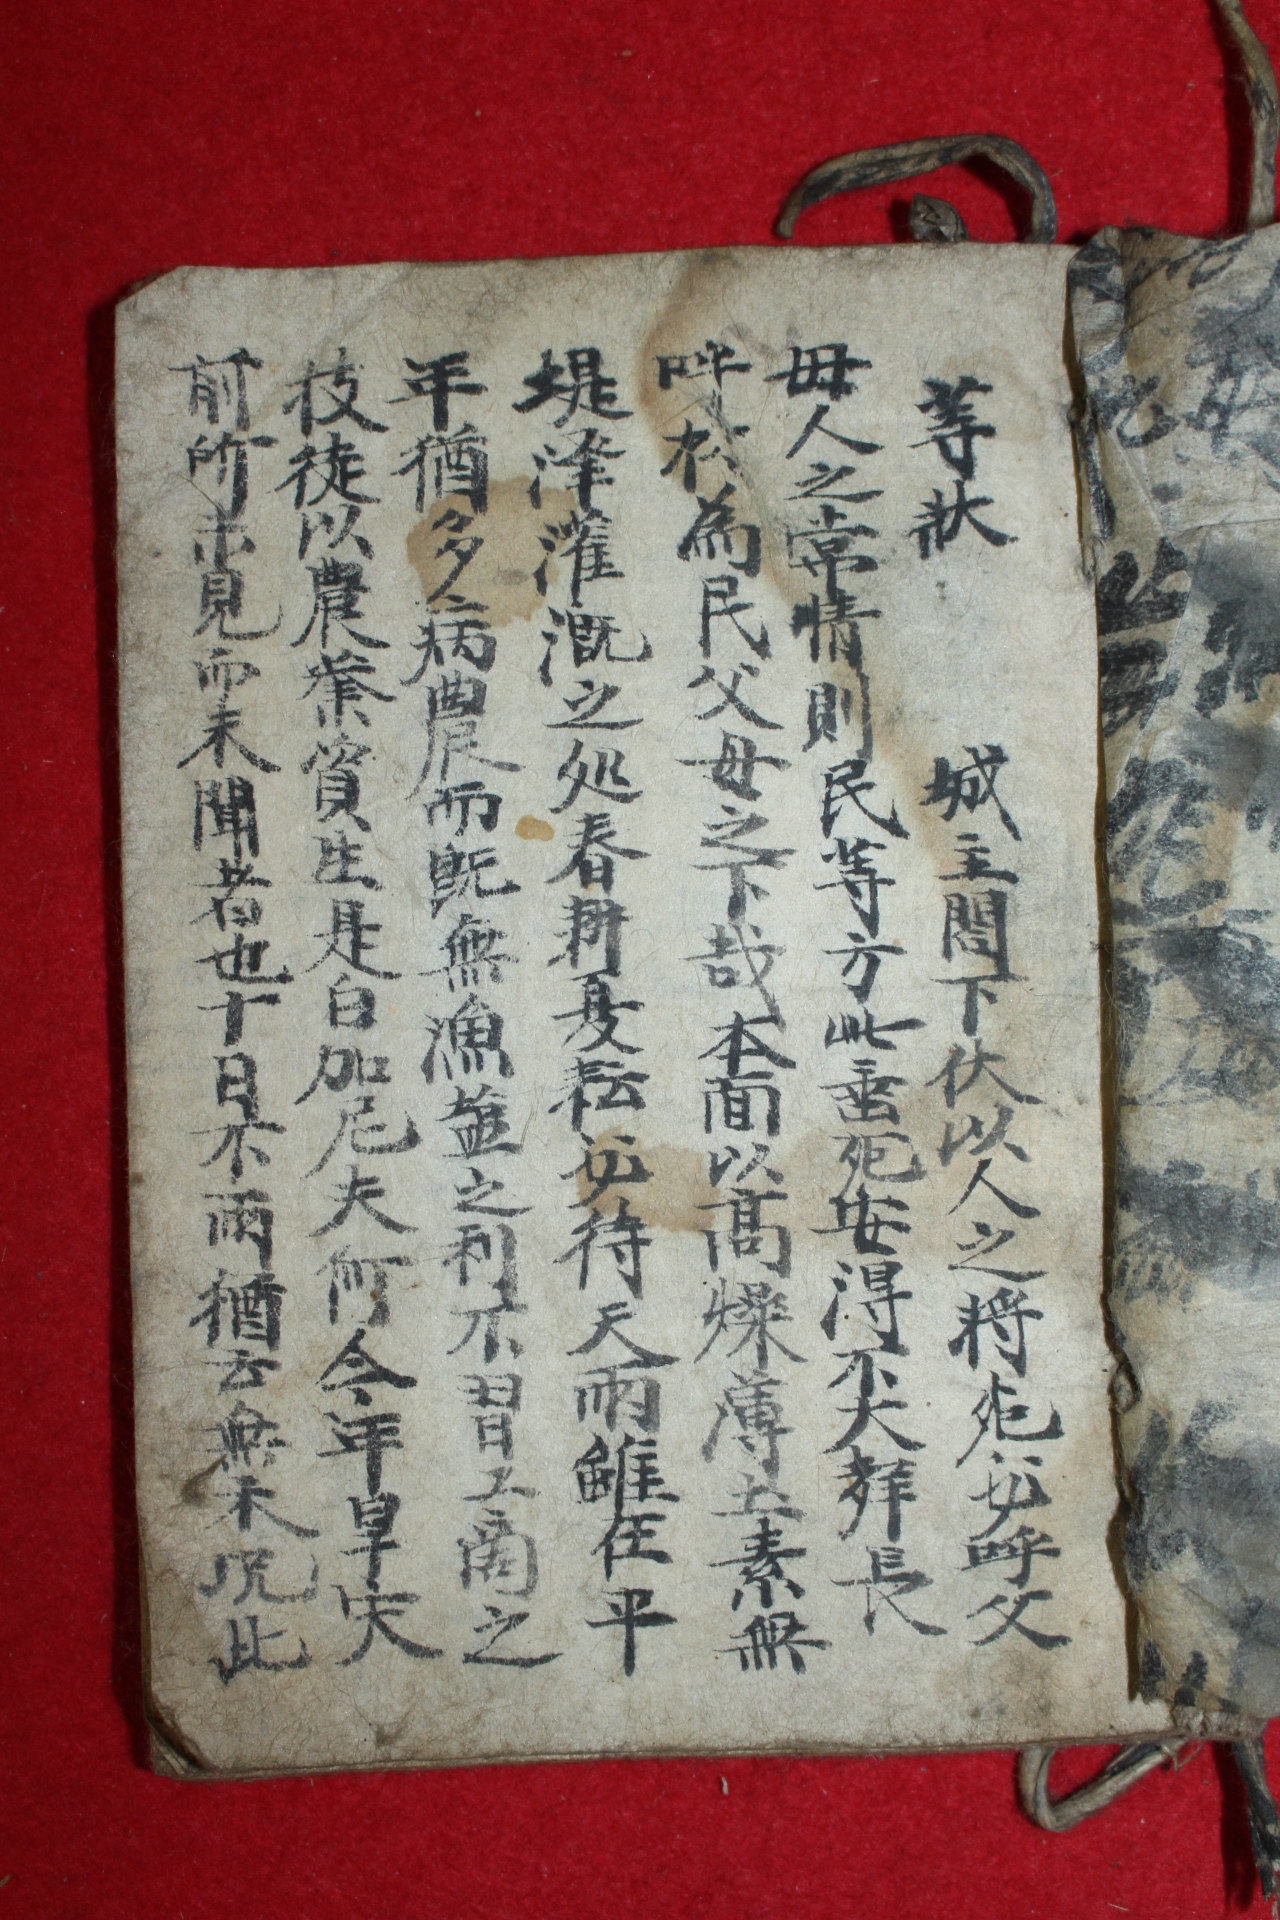 等狀 城主閤下伏以人之將死必呼父
母人之常情則民等方此垂死安得不大聲長
呼於為民父母之下哉本面以高燥薄土素無
堤澤灌漑之処春耕夏耘必待天雨雖在平
年猶多病農而旣無漁盐之利不習工商之
技徒以農業資生是白加尼夫何今年旱灾
前所未見而未聞者也十日不雨猶云無禾况此